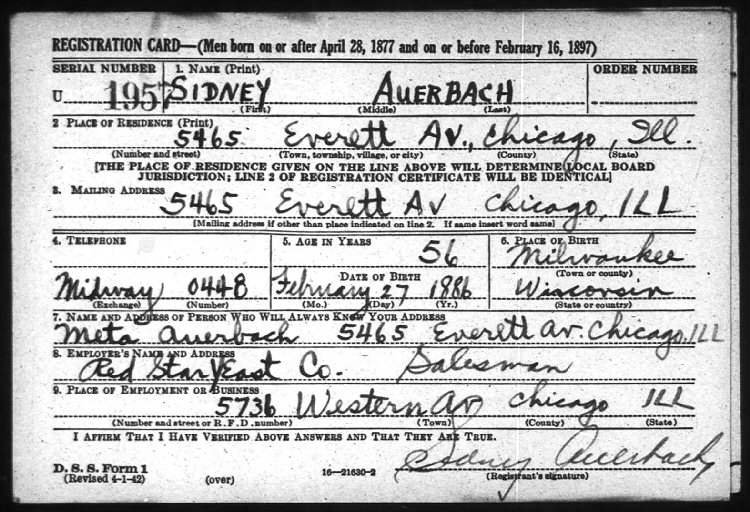 REGISTRATION CARD—(Men born on or after April 28, 1877 and on or before February 16, 1897)
SERIAL NUMBER 1. NAME (Print) ORDER NUMBER
U 1957 SIDNEY AUERBACH
(First) (Middle) (Last)
2 PLACE OF RESIDENCE (Print)
5465 Everett Av., Chicago, Ill.
(Number and street) (Town, township, village, or city) (County) (State)
[THE PLACE OF RESIDENCE GIVEN ON THE LINE ABOVE WILL DETERMINE LOCAL BOARD
JURISDICTION; LINE 2 OF REGISTRATION CERTIFICATE WILL BE IDENTICAL]
3. MAILING ADDRESS
5465 Everett Av Chicago, ILL
[Mailing address if other than place indicated on line 2. If same insert word same]
4. TELEPHONE 5. AGE IN YEARS 6. PLACE OF BIRTH
56 Milwaukee
DATE OF BIRTH (Town or county)
Midway 0448 February 27 1886 Wisconsin
(Exchange) (Number) (Mo.) (Day) (Yr.) (State or country)
7. NAME AND ADDRESS OF PERSON WHO WILL ALWAYS KNOW YOUR ADDRESS
Meta Auerbach 5465 Everett Av. Chicago, ILL
8. EMPLOYER'S NAME AND ADDRESS
Red Star Yeast Co. Salesman
9. PLACE OF EMPLOYMENT OR BUSINESS
5736 Western Av Chicago ILL
(Number and street or R. F. D. number) (Town) (County) (State)
I AFFIRM THAT I HAVE VERIFIED ABOVE ANSWERS AND THAT THEY ARE TRUE.
Sidney Auerbach
D. S. S. Form 1 16—21630-2 (Registrant's signature)
(Revised 4-1-42) (over)